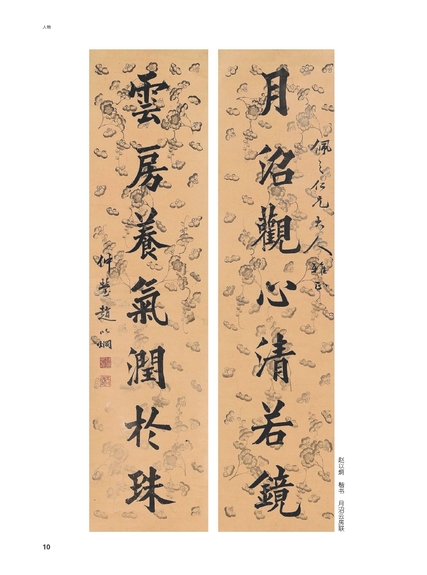 人物
月沼觀心清若鏡
佩之仁兄大人雅正
雲房養氣潤於珠
仲瑩趙以炯
赵以炯 楷书 月沼云房联
10